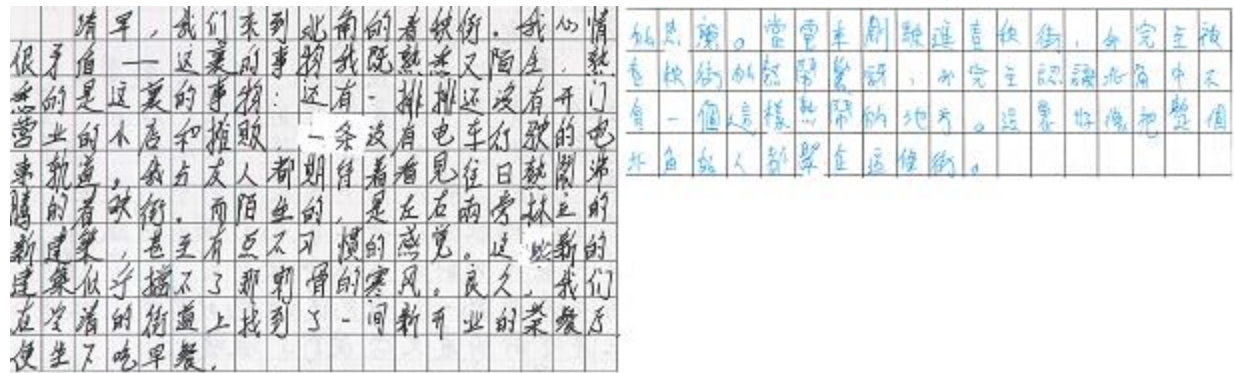 清早，我们来到北角的春秧街。我心情
很矛盾——这裏的事物我既熟悉又陌生，熟
悉的是这裏的事物：还有一排排还没有开门
营业的小店和摊贩，一条没有电车行驶的电
车轨道。我与友人都期待着看見往日熱鬧沸
腾的春秧街。而陌生的，是左右兩旁林立的
新建築，甚至有点不习慣的感觉。这些新的
建築似乎擋不了那刺骨的寒风。良久，我们
在空清的街道上找到了一间新开业的茶餐厅
便坐下吃早餐。
的思緒。當電車剛駛進春秧街，我完全被
春秧街的熱鬧驚訝，我完全認識北角中不
負一個這樣熱鬧的地方。這裏好像把整個
北角的人都聚在這條街。